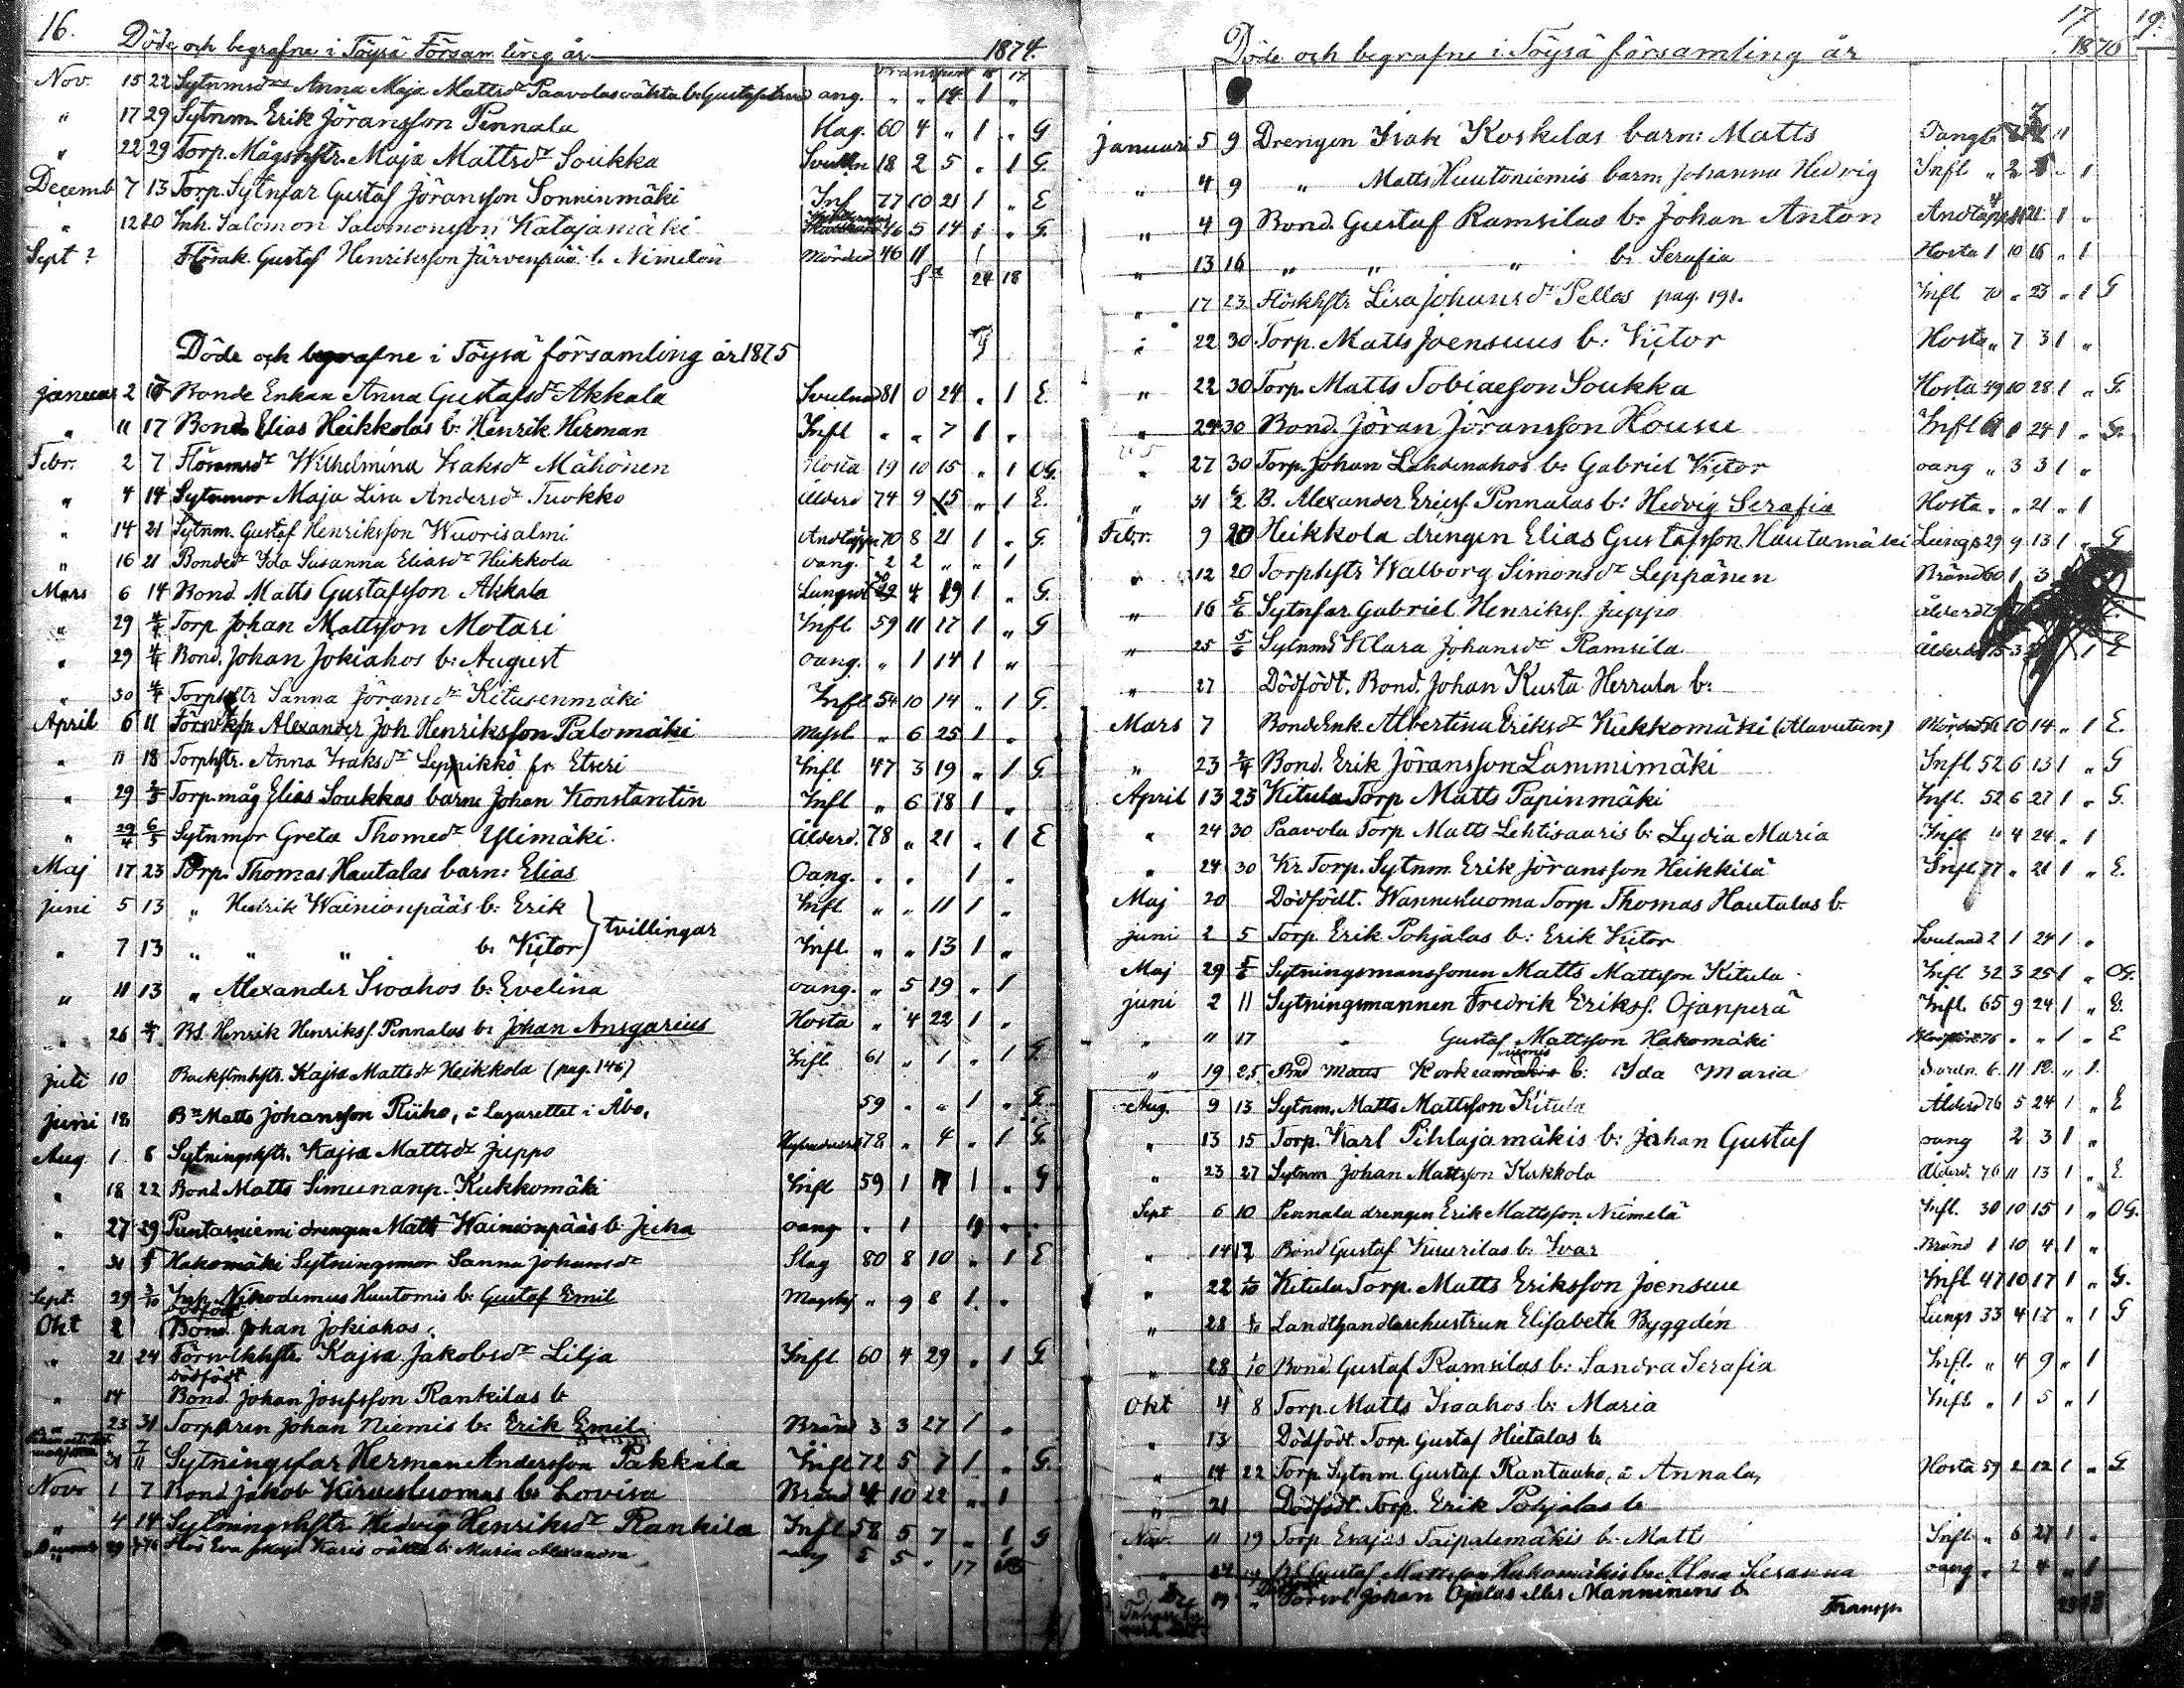 16.
Döde och begrafne i Töysä Församling år 1874.
Transport 15 17
Nov. 15 22 Anna Maja Mattsdr oang. " " 14 1 "
" 17 29 Sytnm. Erik Jöransson Pennala Slag. 60 4 " 1 " G
" 22 29 Torp. Mågshstr. Maja Mattsdr Soukka 18 2 5 " 1 G.
Decemb 7 13 Torp. Sytnfar Gustaf Jöransson Sonninmäki Inf 77 10 21 1 " E
" 12 20 Inh. Salomon Salomonsson Katajamäki 46 5 14 1 " G.
Sept ? Gustaf Henriksson Järvenpää l. Nimelön Mördad 46 11 1
Sa 24 18
Döde och begrafne i Töysä församling år 1875
Januar 2 Bonde Enkan Anna Gustafsdr Akkala Svulnad 81 0 24 " 1 E.
" 11 17 Bond. Elias Heikkolas b: Henrik Herman Infl " " 7 1 "
Febr. 2 7 Wilhelmina Isaksdr Mähönen Hosta 19 10 15 " 1 OG.
" 4 14 Sytnmor Maja Lisa Andersdr Tuokko Ålderd 74 9 15 " 1 E.
" 14 21 Sytnm. Gustaf Henriksson Wuorisalmi Andtäppa 70 8 21 1 " G.
" 16 21 Bondedr Ida Susanna Eliasdr Heikkola oang. 2 2 " " 1
Mars 6 14 Bond Matts Gustafsson Akkala 4 19 1 " G.
" 29 4/4 Torp Johan Mattsson Motari Infl 59 11 17 1 " G
" 29 4/4 Bond. Johan Jokiahos b: August oang. " 1 14 1 "
" 30 4/4 Torphstr Sanna Jöransdr Kitusenmäki Infl 54 10 14 " 1 G.
April 6 11 Alexander Joh Henriksson Palomäki Messl " 6 25 1 "
" 11 18 Torphstr. Anna Isaksdr Leppikkö fr. Etseri Infl 47 3 19 " 1 G.
" 29 2/5 Torp. måg Elias Soukkas barn: Johan Konstantin Infl " 6 18 1 "
" 29/4 6/5 Sytnmor Greta Thomedr Ylimäki. Ålderd. 78 " 21 " 1 E
Maj 17 23 Torp. Thomas Hautalas barn: Elias Oang. " " 1 "
Juni 5 13 " Hedrik Wainionpääs b: Erik Infl " " 11 1 "
tvillingar
" 7 13 " " " b: Victor Infl. " " 13 1 "
" 11 13 " Alexander Isoahos b: Evelina oang. " 5 19 " 1
" 26 4/7 Bd. Henrik Henrikss. Pennalas b: Johan Ansgarius Hosta " 4 22 1 "
Juli 10 Backstmhstr. Kajsa Mattsdr Heikkola (pag. 146) Infl 61 " 1 " 1 G.
Juni 18 Bn Matts Johansson Riiho, å Lazarettet i Åbo, 59 " " 1 " G.
Aug. 1 8 Sytningshstr. Kajsa Mattsdr Juppo 78 " 4 " 1 G.
" 18 22 Bond Matts Simunanp. Kukkomäki Infl 59 1 17 1 " G
" 27 29 Puntarniemi drengen Matt Wainionpääs b: Juha oang " 1 19 " "
" 31 5/9 Hakomäki Sytningsmor Sanna Johansdr Slag 80 8 10 " 1 E
Sept. 29 3/10 Inh. Nikodemus Huutomis b: Gustaf Emil Magsj " 9 8 1 "
dödfödt
Okt 2 Bond. Johan Jokiahos
" 21 24 Kajsa Jakobsdr Lilja Infl 60 4 29 " 1 G.
dödfödt
" 14 Bond. Johan Josefsson Rankilas b
" 23 31 Torparen Johan Niemis b: Erik Emil Bränd 3 3 27 1 "
31 7/11 Sytningsfar Herman Andersson Pakkala Infl 72 5 7 1 " G.
Nov 1 7 Bond Jakob Kirvesluomas b: Lovisa Bränd 4 10 22 " 1
" 4 14 Sytningshstr Hedvig Henriksdr Rankila Infl 58 5 7 " 1 G
29 Eva Maja b: Maria Alexandra oang 5 5 " 17
17. 19.
Döde och begrafne i Töysä församling år 1876
Januari 5 9 Drengen Isak Koskelas barn: Matts
" 4 9 " Matts Huutoniemis barn: Johanna Hedvig Infl " 2 " 1
" 4 9 Bond. Gustaf Ramsilas b: Johan Anton 1 "
" 13 16 " " " b: Serafia Hosta 1 10 16 " 1
" 17 23 Lisa Johansdr Pellas pag. 191. Infl. 70 " 23 " 1 G
" 22 30 Torp. Matts Joensuus b: Victor Hosta " 7 3 1 "
" 22 30 Torp. Matts Tobiaesson Soukka Hosta 49 10 28 1 " G.
" 24 30 Bond. Jöran Jöransson Housu Infl 24 1 " G.
" 27 30 Torp. Johan Lahdenahos b: Gabriel Victor oang " 3 3 1 "
" 31 6/2 B. Alexander Erikss. Pennalas b: Hedvig Serafia Hosta " " 21 " 1
Febr. 9 20 Heikkola drengen Elias Gustafsson Hautamäki Lungs 29 9 13 1 " G
" 12 20 Torphstr Walborg Simonsdr Leppänen Bränd 60 1 3
" 16 Sytnfar Gabriel Henrikss. Juppo Ålderd
" 25 Klara Johansdr Ramsila Ålderd 1 E
" 27 Dödfödt. Bond. Johan Kusta Herrala b:
Mars 7 BondeEnk. Albertina Eriksdr Kukkomäki (Alavuden) Mördad 56 10 14 " 1 E.
" 23 2/4 Bond. Erik Jöransson Lammimäki Infl. 52 6 13 1 " G
April 13 23 Kitula Torp Matts Papinmäki Infl. 52 6 27 1 " G.
" 24 30 Paavola Torp Matts Lehtisaaris b: Lydia Maria Infl " 4 24 " 1
" 24 30 Kr. Torp. Sytnm. Erik Jöransson Heikkilä Infl. 77 " 21 1 " E.
Maj 20 Dödfödt. Wannesluoma Torp Thomas Hautalas b.
Juni 2 5 Torp. Erik Pohjalas b: Erik Victor Svulnad 2 1 24 1 "
Maj 29 5/6 Sytningsmanssonen Matts Mattsson Kitula Infl 32 3 25 1 " OG.
Juni 2 11 Sytningsmannen Fredrik Erikss. Ojanperä Infl. 65 9 24 1 " E.
" 11 17 " Gustaf Mattsson Hakomäki 76 " " 1 " E
niemis
" 19 25 Bd Matts Korkeamäkis b: Ida Maria 6 11 12 " 1
Aug. 9 13 Sytnm. Matts Mattsson Kitula Ålderd 76 5 24 1 " E
" 13 15 Torp. Karl Pihlajamäkis b: Johan Gustaf oang 2 3 1 "
" 23 27 Sytnm Johan Mattsson Kukkola Ålderd. 76 11 13 1 " E.
Sept 6 10 Pennala drengen Erik Mattsson Niimelä Infl. 30 10 15 1 " OG.
" 14 17 Bond Gustaf Kuurilas b: Ivar Bränd 1 10 4 1 "
" 22 1/10 Kitula Torp. Matts Eriksson Joensuu Infl 47 10 17 1 " G.
" 28 Landthandlarehustrun Elisabeth Byggdén Lungs 33 4 17 " 1 G
" 28 1/10 Bond Gustaf Ramsilas b: Sandra Serafia Infl. " 4 9 " 1
Okt 4 8 Torp. Matts Isoahos b: Maria Infl. " 1 5 " 1
" 13 Dödfödt. Torp Gustaf Hietalas b
" 14 22 Torp Sytnm. Gustaf Rantauho, å Annala, Hosta 59 2 12 1 " G
" 21 Dödfödt. Torp. Erik Pohjalas b
Nov. 11 19 Torp Esajas Taipalemäkis b: Matt Infl " 6 27 1 "
Gustaf Mattsson Hakomäkis b: Alma Susanna oang " 2 4 " 1
19 Johan Ojalas eller Manninens b
Transp.